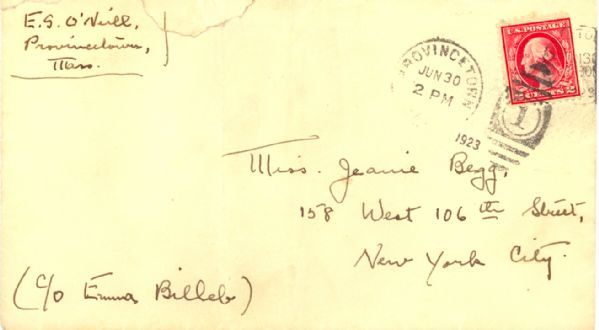 E.G. O'Neill,
Provincetown,
Mass.
PROVINCETOWN
JUN 30
2 PM
1923
U.S. POSTAGE
2 CENTS 2
1
Miss. Jeanie Begg,
158 West 106th Street,
New York City.
(C/o Emma Billeb)